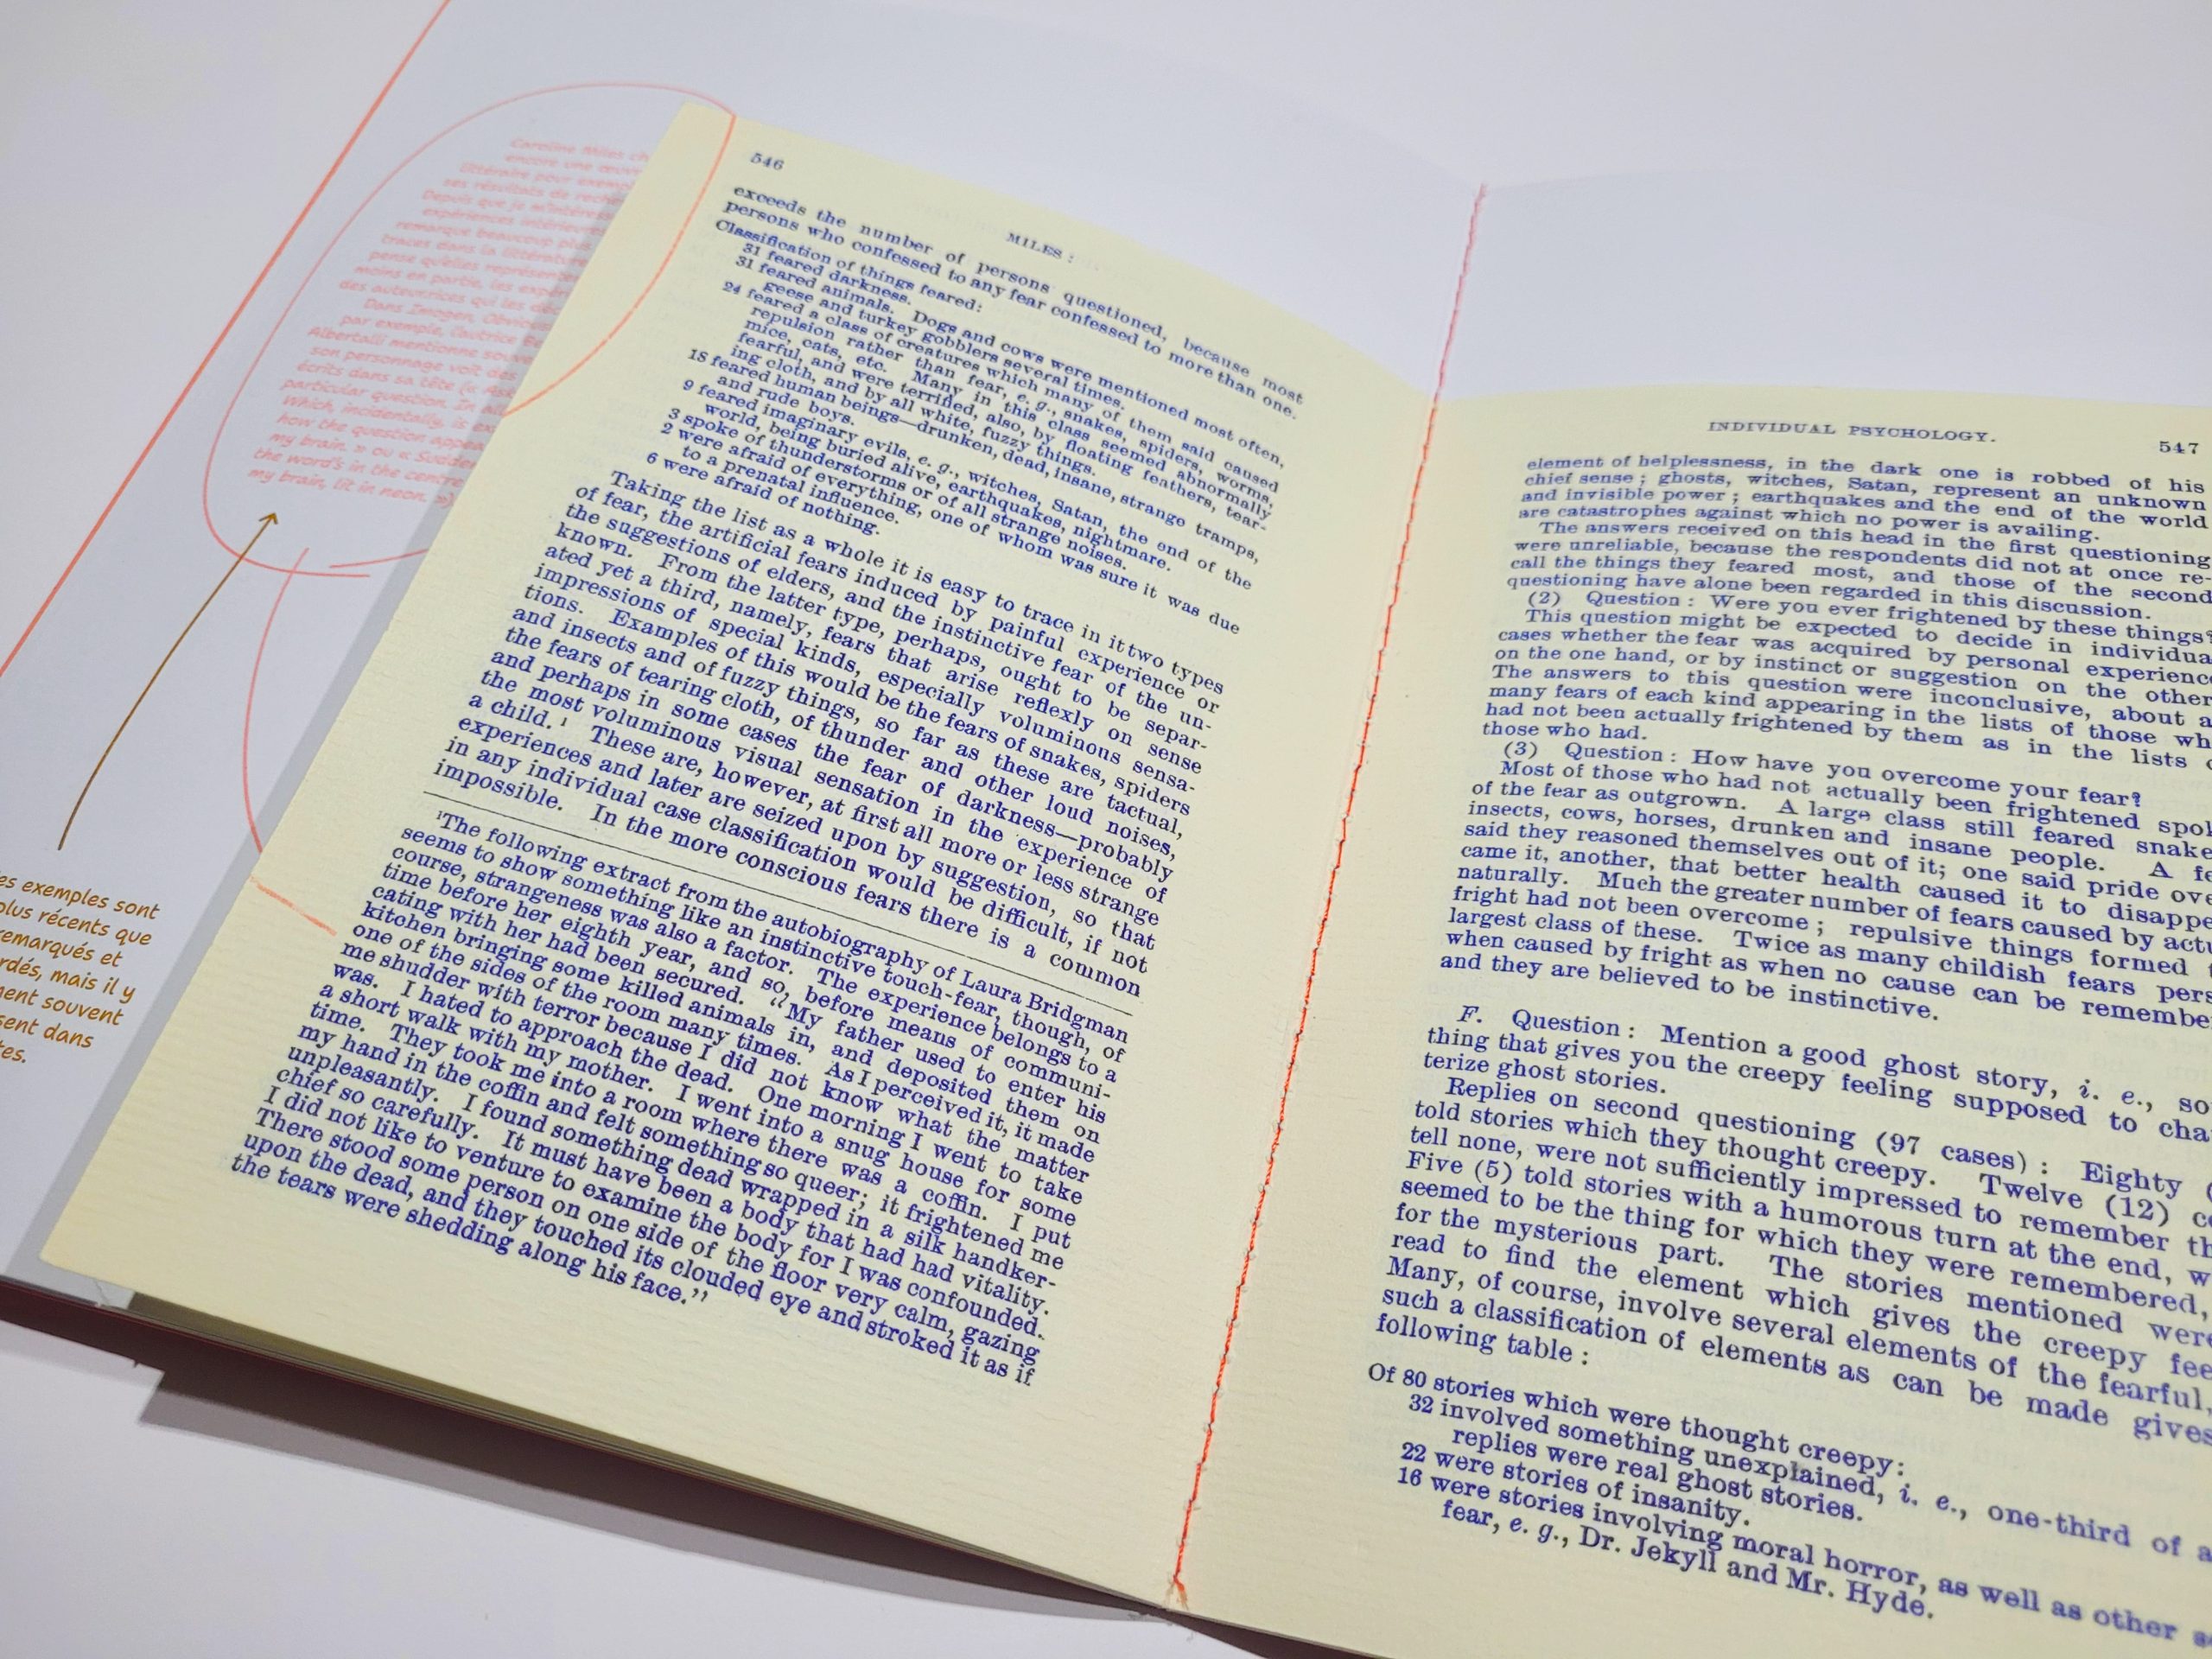 Caroline Miles
encore une
littéraire pour
ses résultats de
Depuis que je
expériences
remarque beaucoup plus
traces dans la
pense qu'elles
moins en partie, les
des auteurtrices qui les
Dans Imogen, Obviously
par exemple, l'autrice
Albertalli mentionne
son personnage voit des
écrits dans sa tête
particular question.
Which, incidentally, is
how the question
my brain. » ou «
the word's in the centre
my brain, lit in neon. »)
es exemples sont
plus récents que
remarqués et
rdés, mais il y
ment souvent
sent dans
tes.
546
MILES :
exceeds the number of persons questioned, because most
persons who confessed to any fear confessed to more than one.
Classification of things feared:
31 feared darkness.
31 feared animals. Dogs and cows were mentioned most often,
geese and turkey gobblers several times.
24 feared a class of creatures which many of them said caused
repulsion rather than fear, e. g., snakes, spiders, worms,
mice, cats, etc. Many in this class seemed abnormally
fearful, and were terrified, also, by floating feathers, tear-
ing cloth, and by all white, fuzzy things.
18 feared human beings—drunken, dead, insane, strange tramps,
and rude boys.
9 feared imaginary evils, e. g., witches, Satan, the end of the
world, being buried alive, earthquakes, nightmare.
3 spoke of thunderstorms or of all strange noises.
2 were afraid of everything, one of whom was sure it was due
to a prenatal influence.
6 were afraid of nothing.
Taking the list as a whole it is easy to trace in it two types
of fear, the artificial fears induced by painful experience or
the suggestions of elders, and the instinctive fear of the un-
known. From the latter type, perhaps, ought to be separ-
ated yet a third, namely, fears that arise reflexly on sense
impressions of special kinds, especially voluminous sensa-
tions. Examples of this would be the fears of snakes, spiders
and insects and of fuzzy things, so far as these are tactual,
the fears of tearing cloth, of thunder and other loud noises,
and perhaps in some cases the fear of darkness—probably
the most voluminous visual sensation in the experience of
a child.¹ These are, however, at first all more or less strange
experiences and later are seized upon by suggestion, so that
in any individual case classification would be difficult, if not
impossible. In the more conscious fears there is a common
¹The following extract from the autobiography of Laura Bridgman
seems to show something like an instinctive touch-fear, though, of
course, strangeness was also a factor. The experience belongs to a
time before her eighth year, and so, before means of communi-
cating with her had been secured. "My father used to enter his
kitchen bringing some killed animals in, and deposited them on
one of the sides of the room many times. As I perceived it, it made
me shudder with terror because I did not know what the matter
was. I hated to approach the dead. One morning I went to take
a short walk with my mother. I went into a snug house for some
time. They took me into a room where there was a coffin. I put
my hand in the coffin and felt something so queer; it frightened me
unpleasantly. I found something dead wrapped in a silk handker-
chief so carefully. It must have been a body that had had vitality.
I did not like to venture to examine the body for I was confounded.
There stood some person on one side of the floor very calm, gazing
upon the dead, and they touched its clouded eye and stroked it as if
the tears were shedding along his face."
INDIVIDUAL PSYCHOLOGY.
547
element of helplessness, in the dark one is robbed of his
chief sense; ghosts, witches, Satan, represent an unknown
and invisible power; earthquakes and the end of the world
are catastrophes against which no power is availing.
The answers received on this head in the first questioning
were unreliable, because the respondents did not at once re-
call the things they feared most, and those of the second
questioning have alone been regarded in this discussion.
(2) Question: Were you ever frightened by these things?
This question might be expected to decide in individua
cases whether the fear was acquired by personal experience
on the one hand, or by instinct or suggestion on the other
The answers to this question were inconclusive, about a
many fears of each kind appearing in the lists of those wh
had not been actually frightened by them as in the lists o
those who had.
(3) Question: How have you overcome your fear?
Most of those who had not actually been frightened spok
of the fear as outgrown. A large class still feared snake
insects, cows, horses, drunken and insane people. A fe
said they reasoned themselves out of it; one said pride ove
came it, another, that better health caused it to disappe
naturally. Much the greater number of fears caused by actu
fright had not been overcome; repulsive things formed t
largest class of these. Twice as many childish fears pers
when caused by fright as when no cause can be remembe
and they are believed to be instinctive.
F. Question: Mention a good ghost story, i. e., so
thing that gives you the creepy feeling supposed to cha
terize ghost stories.
Replies on second questioning (97 cases): Eighty (
told stories which they thought creepy. Twelve (12) co
tell none, were not sufficiently impressed to remember th
Five (5) told stories with a humorous turn at the end, w
seemed to be the thing for which they were remembered,
for the mysterious part. The stories mentioned were
read to find the element which gives the creepy fee
Many, of course, involve several elements of the fearful,
such a classification of elements as can be made gives
following table:
Of 80 stories which were thought creepy:
32 involved something unexplained, i. e., one-third of a
replies were real ghost stories.
22 were stories of insanity.
16 were stories involving moral horror, as well as other
fear, e. g., Dr. Jekyll and Mr. Hyde.